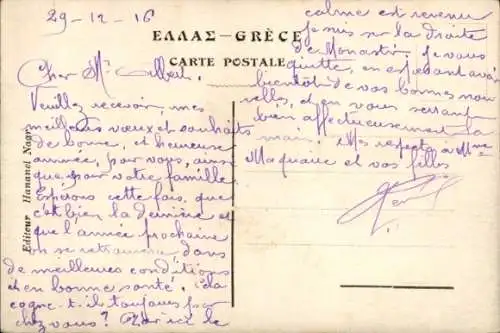 29-12-16
ΕΛΛΑΣ - GRÈCE
CARTE POSTALE
Editeur Hananel Nagr
Cher Mr
Veuillez recevoir, mes
meilleurs vœux et souhaits
de bonne, et heureuse
année, pour vous, ainsi
que pour votre famille
Espérons cette fois, que
c'est bien la dernière et
que l'année prochaine
on se retrouvera dans
de meilleures conditions
et en bonne santé. Cela
cogne-t-il toujours par
chez vous? Par ici le
calme est revenu
je suis sur la droite
de Monastir. Je vous
quitte, en espérant avoir
bientôt de vos bonnes nou
velles, et en vous serrant
bien affectueusement la
main. Mes respects à Mme
et vos filles